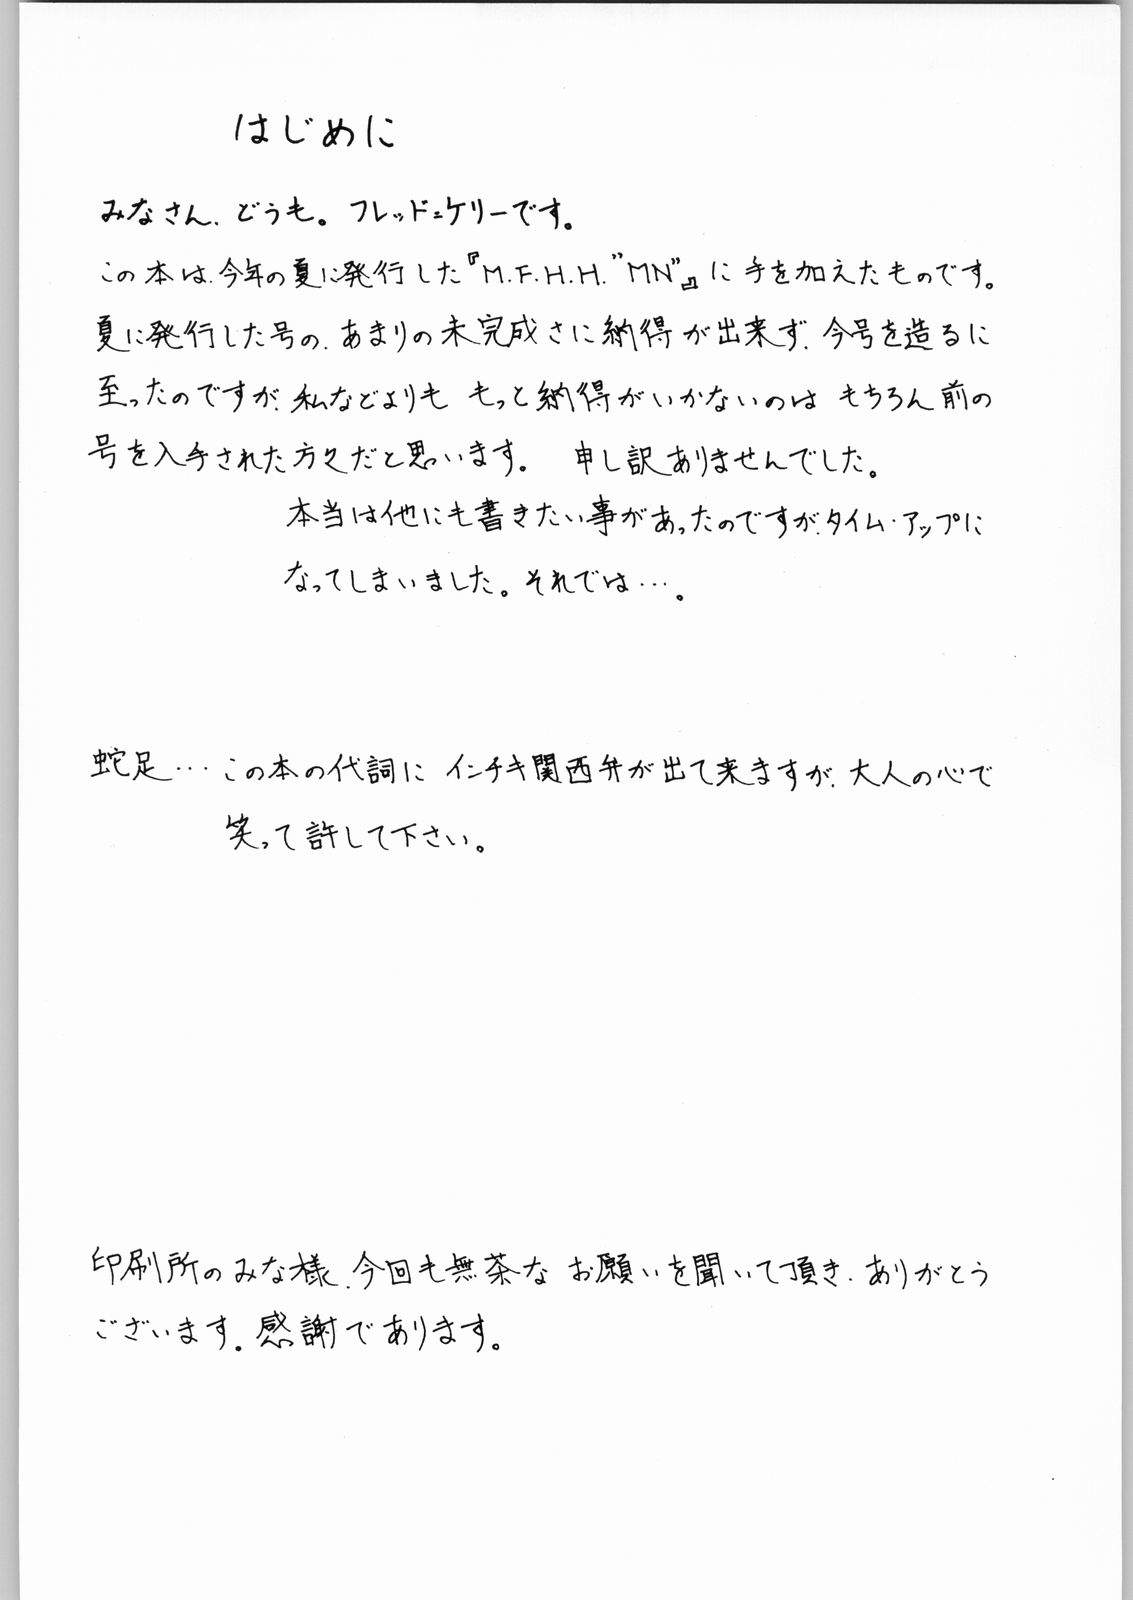 はじめに
みなさん、どうも。フレッド=ケリーです。
この本は、今年の夏に発行した『M.F.H.H."MN"』に手を加えたものです。
夏に発行した号の、あまりの未完成さに納得が出来ず、今号を造るに
至ったのですが、私などよりも もっと納得がいかないのは もちろん前の
号を入手された方々だと思います。 申し訳ありませんでした。
本当は他にも書きたい事があったのですが、タイム・アップに
なってしまいました。それでは…。
蛇足…この本の代詞に インチキ関西弁が出て来ますが、大人の心で
笑って許して下さい。
印刷所のみな様、今回も無茶な お願いを聞いて頂き、ありがとう
ございます。感謝であります。